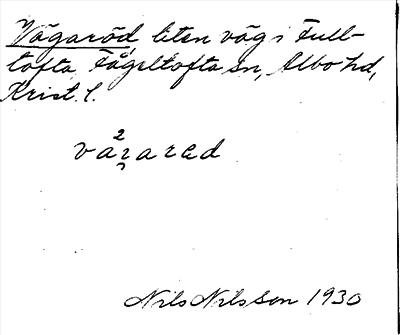 Vägaröd, liten väg i Full-
tofta, Fågeltofta sn, Albo hd,
Krist. l.
Nils Nilsson 1930